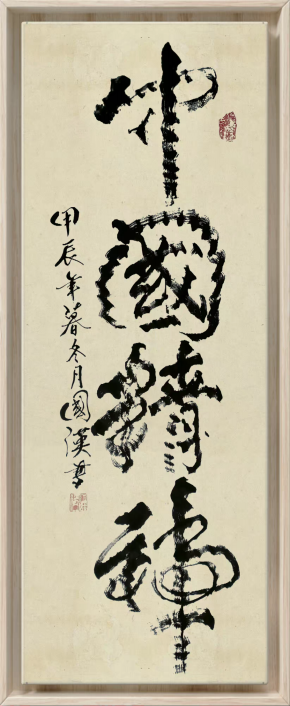 中國精神
甲辰年暮冬月國漢書